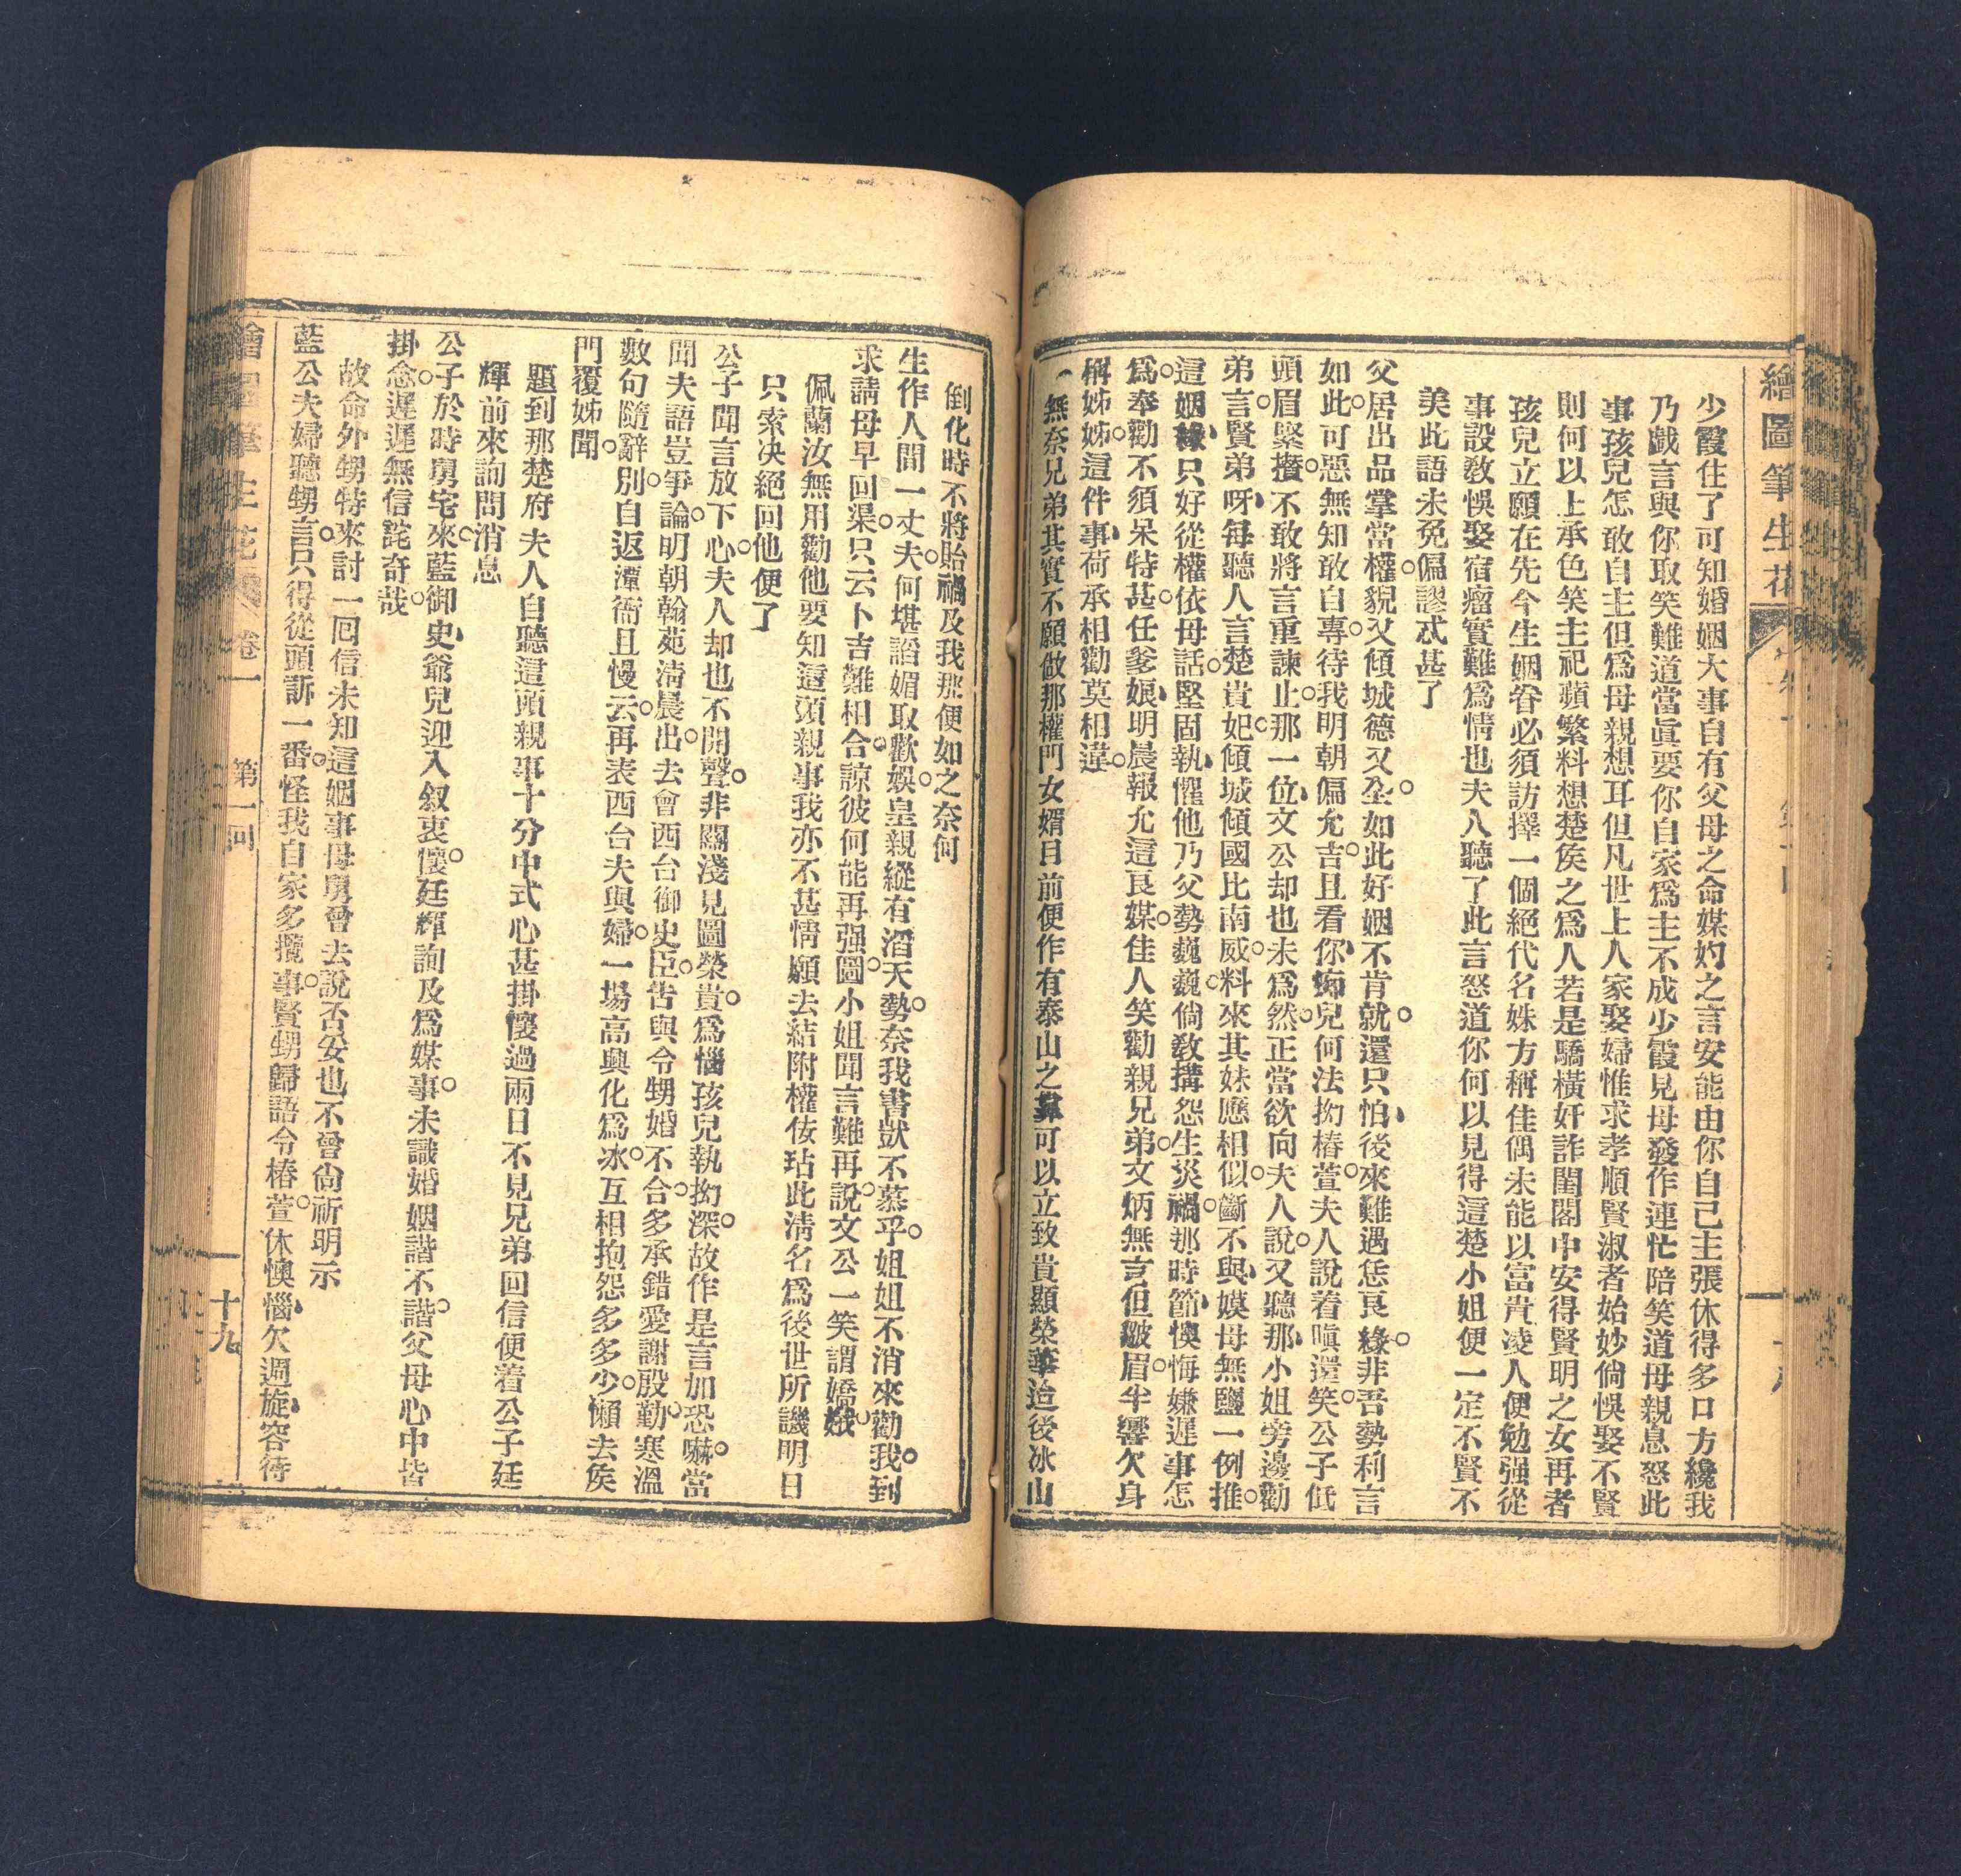 繪圖筆生花
少霞住了可知婚姻大事自有父母之命媒妁之言安能由你自己主張休得多口方纔我
乃戲言與你取笑難道當眞要你自家爲主不成少霞見母發作連忙陪笑道母親息怒此
事孩兒怎敢自主但爲母親想耳但凡世上人家娶婦惟求孝順賢淑者始妙倘悞娶不賢
則何以上承色笑主祀蘋繁料想楚侯之爲人若是驕橫奸詐閨閣中安得賢明之女再者
孩兒立願在先今生姻眷必須訪擇一個絕代名姝方稱佳偶未能以富貴凌人便勉强從
事設敎悞娶宿瘤實難爲情也夫人聽了此言怒道你何以見得這楚小姐便一定不賢不
美此語未免偏謬忒甚了
父居出品掌當權。貌又傾城德又全。如此好姻不肯就。還只怕、後來難遇恁良緣。非吾勢利言
如此。可惡無知敢自專。待我明朝偏允吉。且看你、痴兒何法拗椿萱。夫人說着嗔還笑。公子低
頭眉緊攢。不敢將言重諫止。那一位、文公却也未爲然。正當欲向夫人說。又聽那、小姐旁邊勸
弟言。賢弟呀、每聽人言楚貴妃。傾城傾國比南威。料來其妹應相似。斷不與、嫫母無鹽一例推。
這姻緣、只好從權依母話。堅固執、惟他乃父勢巍巍。倘敎搆怨生災禍。那時節、懊悔嫌遲事怎
爲。奉勸不須呆特甚。任爹娘、明晨報允這良媒。佳人笑勸親兄弟。文炳無言但皺眉。半響欠身
稱姊姊。這件事、荷承相勸莫相違。
無奈兄弟其實不願做那權門女婿目前便作有泰山之靠可以立致貴顯榮華迨後冰山
倒化時不將貽禍及我那便如之奈何
生作人間一丈夫。何堪諂媚取歡娛。皇親縱有滔天勢。奈我書獃不慕乎。姐姐不消來勸我。到
求請母早回渠。只云卜吉難相合。諒彼何能再强圖。小姐聞言難再說。文公一笑謂嬌娥
佩蘭汝無用勸他要知這頭親事我亦不甚情願去結附權佞玷此淸名爲後世所譏明日
只索决絕回他便了
公子聞言放下心。夫人却也不開聲。非關淺見圖榮貴。爲惱孩兒執拗深。故作是言加恐嚇。當
聞夫語豈爭論。明朝翰苑淸晨出。去會西台御史臣。告與令甥婚不合。多承錯愛謝殷勤。寒溫
數句隨辭別。自返潭衙且慢云。再表西台夫與婦。一場高興化爲冰。互相抱怨多多少。懶去侯
門覆姊聞。
題到那楚府夫人自聽這頭親事十分中式心甚掛懷過兩日不見兄弟回信便着公子廷
輝前來詢問消息
公子於時舅宅來。藍御史、爺兒迎入叙衷懷。廷輝詢及爲媒事。未識婚姻諧不諧。父母心中皆
掛念。遲遲無信詫奇哉。
故命外甥特來討一回信未知這姻事母舅曾去說否安也不曾尙祈明示
藍公夫婦聽甥言。只得從頭訴一番。怪我自家多攬事。賢甥歸語令椿萱。休懊惱、欠週旋。容待
繪圖筆生花 卷一 第一回 十九